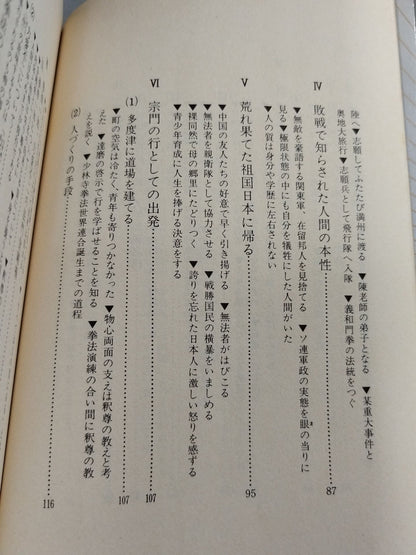 陸へ▼志願してふたたび満州に渡る▼陳老師の弟子となる▼某重大事件と
奥地大旅行▼志願兵として飛行隊へ入隊▼義和門拳の法統をつぐ
Ⅳ 敗戦で知らされた人間の本性……87
▼無敵を豪語する関東軍、在留邦人を見捨てる▼ソ連軍政の実態を眼の当りに
見る▼極限状態の中にも自分を犠牲にした人間がいた
▼人の質は身分や学歴に左右されない
Ⅴ 荒れ果てた祖国日本に帰る……95
▼中国の友人たちの好意で早く引き揚げる▼無法者がはびこる
▼無法者を親衛隊として協力させる▼戦勝国民の横暴をいましめる
▼裸同然で母の郷里にたどりつく▼誇りを忘れた日本人に激しい怒りを感ずる
▼青少年育成に人生を捧げる決意をする
Ⅵ 宗門の行としての出発……107
(1) 多度津に道場を建てる……107
▼町の空気は冷たく、青年も寄りつかなかった▼物心両面の支えは釈尊の教えと考
えた▼達磨の啓示で行を学ばせることを知る▼拳法演練の合い間に釈尊の教
えを説く▼少林寺拳法世界連合誕生までの道程
(2) 人づくりの手段……116